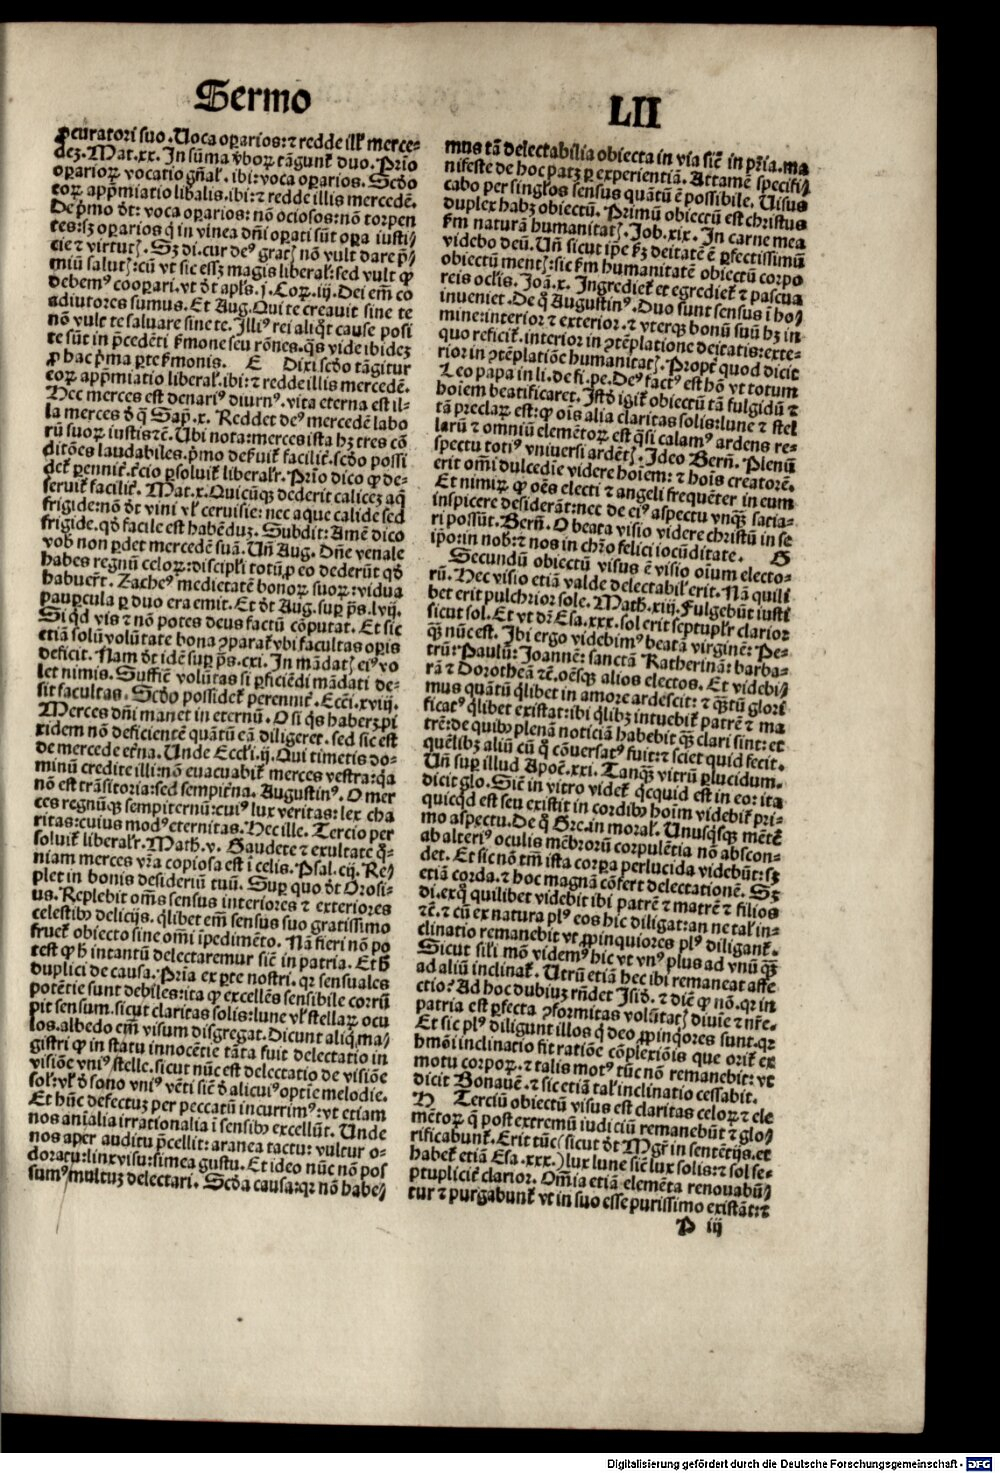 Sermo LII
ꝓcuratori suo. Uoca oꝑarios: ⁊ redde ill' merce-
deʒ. Mat. xx. In sūma v̄boꝝ tāgunt̄ duo. Prīo
oꝑarioꝝ vocatio gn̄al'. ibi: voca oꝑarios. Scd̄o
eoꝝ app̄miatio libalis. ibi: ⁊ redde illis mercedē.
De p̄mo dt̄: voca oꝑarios: nō ociosos: nō torpen
tes: sʒ oꝑarios q̄ in vinea dn̄i oꝑati sūt oꝑa iusti⸗
cie ⁊ virtutꝭ. Sʒ di. cur deꝰ gratꝭ nō vult dare p̄⸗
miū salutꝭ: cū vt sic essʒ magis liberal': sed vult ꝙ
debemꝰ cooꝑari. vt dt̄ apl's. j. Coꝝ. iij. Dei em̄ co
adiutores sumus. Et Aug. Qui te creauit sine te
nō vult te saluare sine te. Illiꝰ rei aliq̄t cause posi
te sūt in p̄cedēti s̄mone seu rōnes. q̄s vide ibideʒ
ꝓ hac p̄ma ꝑte s̄monis. E Dixi scd̄o tāgitur
eoꝝ app̄miatio liberal'. ibi: ⁊ redde illis mercedē.
Hec merces est denariꝰ diurnꝰ. vita eterna est il-
la merces d̄ q̄ Sap̄. x. Reddet deꝰ mercedē labo
rū suoꝝ iustis ⁊c̄. Ubi nota: merces ista hʒ tres cō
ditōes laudabiles. p̄mo def̄uit̄ facilit̄. scd̄o possi
det̄ perennit̄. t̄cio ꝑsoluit̄ liberalr̄. Prīo dico ꝙ de-
seruit̄ facilit̄. Mat. x. Quicūqʒ dederit caliceʒ aq̄
frigide. nō dt̄ vini vl' ceruisie: nec aque calide sed
frigide. qd̄ facile est habēduʒ. Subdit: Amē dico
vob̄ non ꝑdet mercedē suā. Un̄ Aug. Dn̄e venale
habes regnū celoꝝ: discipl'i totū, ꝓ eo dederūt qd̄
habuer̄t. Zacheꝰ medietatē bonoꝝ suoꝝ: vidua
pauꝑcula ꝑ duo era emit. Et dt̄ Aug. suꝑ ps̄. lvij.
Si qd̄ vis ⁊ nō potes deus factū cōputat. Et sic
etiā solū volūtate bona ꝯparat̄ vbi facultas oꝑis
deficit. Nam dt̄ idē suꝑ ps̄. cxi. In mādatꝭ eiꝰ vo
let nimis. Suffic̄ volūtas si ꝑficiēdi mādati de-
sit facultas. Scd̄o possidet̄ perennit̄. Ecci. xviij.
Merces dn̄i manet in eternū. O si q̄s haberʒ pi
xidem nō deficientē quātū eā diligeret. sed sic est
de mercede et̄na. Unde Eccl'i. ij. Qui timetis do-
minū credite illi: nō euacuabit̄ merces vestra: q̄a
nō est trāsitoria: sed sempit̄na. Augustinꝰ. O mer
ces regnūqʒ sempiternū: cuiꝰ lux veritas: lex cha
ritas: cuius modꝰ eternitas. Hec ille. Tercio per
soluit̄ liberalr̄. Math. v. Gaudete ⁊ exultate q̄-
niam merces vr̄a copiosa est ī celis. Psal. cij. Re⸗
plet in bonis desideriū tuū. Suꝑ quo dt̄ Orosi-
us. Replebit om̄s sensus interiores ⁊ exteriores
celestibꝰ delicijs. q̄libet em̄ sensus suo gratissimo
fruet̄ obiecto sine om̄i īpedimēto. Nā fieri nō po
test ꝙ h̄ intantū delectaremur sic̄ in patria. Et h̄
duplici de causa. Prīa ex ꝑte nostri. qꝛ sensuales
potētie sunt debiles: ita ꝙ excellēs sensibile corrū
pit sensum. sicut claritas solis: lune vl' stellaꝝ ocu
los. albedo em̄ visum disgregat. Dicunt aliq̄, ma⸗
gistri ꝙ in statu innocētie tāta fuit delectatio in
visiōe vniꝰ stelle. sicut nūc est delectatio de visiōe
sol': vl' d̄ sono vniꝰ vēti sic̄ d̄ alicuiꝰ optīe melodie.
Et hūc defectuʒ per peccatū incurrimꝰ: vt etiam
nos animalia irrationalia ī sensibꝰ excellūt. Unde
nos aper auditu p̄cellit: aranea tactu: vultur o-
doratu: linx visu: simea gustu. Et ideo nūc nō pos
sumꝰ multuʒ delectari. Scd̄a causa: qꝛ nō habe⸗
mus tā delectabilia obiecta in via sic̄ in pr̄ia. ma
nifeste de hoc patʒ ꝑ experientiā. Attamē specifi⸗
cabo per singl'os sensus quātū ē possibile. Uisus
duplex habʒ obiectū. Primū obiectū est christus
s̄m naturā humanitatꝭ. Job. xix. In carne mea
videbo deū. Un̄ sicut ip̄e s̄ʒ deitatē ē ꝑfectissimū
obiectū mentꝭ: sic s̄m humanitatē obiectū corpo
reis ocl'is. Joā. x. Ingrediet̄ et egrediet̄ ⁊ pascua
inueniet. De q̄ Augustinꝰ. Duo sunt sensus ī ho⸗
mine: interior ⁊ exterior. ⁊ vterqʒ bonū suū hʒ in
quo reficit̄. interior in ꝯtēplatione deitatis: exte-
rior in ꝯtēplatiōe humanitatꝭ. Propt̄ quod dicit
Leo papa in li. de fi. pe. Deꝰ factꝰ est hō vt totum
hoiem beatificaret. Istd̄ igit̄ obiectū tā fulgidū ⁊
tā preclaꝝ est: ꝙ oīs alia claritas solis: lune ⁊ stel
larū ⁊ omniū elemētoꝝ est q̄si calamꝰ ardens re-
spectu totiꝰ vniuersi ardētꝭ. Ideo Bern̄. Plenū
erit om̄i dulcedie videre hoiem: ⁊ hois creatorē.
Et nimiꝝ ꝙ oēs electi ⁊ angeli frequēter in eum
inspicere desiderāt: nec de eiꝰ aspectu vnqʒ̄ satia-
ri possūt. Bern̄. O beata visio videre christū in se
ip̄o: in nob̄: ⁊ nos in chr̄o felici iocūditate. G
Secundū obiectū visus ē visio oīum electo-
rū. Hec visio etiā valde delectabil' erit. Nā quili
bet erit pulchrior sole. Math. xiij. Fulgebūt iusti
sicut sol. Et vt dr̄ Esa. xxx. sol erit septuplr̄ clarior
qʒ̄ nūc est. Ibi ergo videbimꝰ beatā virginē: Pe-
trū: Paulū: Joannē: sanctā Katherinā: barba-
rā ⁊ Dorotheā ⁊c̄. oēsqʒ alios electos. Et videbi⸗
mus quātū q̄libet in amore ardescit: ⁊ qʒ̄tū glori
ficatꝰ q̄libet existat: ibi q̄libʒ intuebit̄ patrē ⁊ ma
trē: de quibꝰ plenā noticiā habebit qʒ̄ clari sint: et
quēlibʒ aliū cū q̄ cōuersatꝰ fuit: ⁊ sciet quid fecit.
Un̄ suꝑ illud Apoc̄. xxi. Tanqʒ̄ vitrū ꝑlucidum.
dicit glo. Sic̄ in vitro videt̄ q̄cquid est in eo: ita
quicqd̄ est seu existit in cordibꝰ hoim videbit̄ pri-
mo aspectu. De q̄ Grc. in moral'. Unusq̄sqʒ mētē
ab alteriꝰ oculis mēbrorū corpulētia nō abscon-
det. Et sic nō tm̄ ista corꝑa perlucida videbūt: sʒ
etiā corda. ⁊ hoc magnā cōfert delectationē. Sʒ
di. ex q̄ quilibet videbit ibi patrē ⁊ matrē ⁊ filios
⁊c̄. ⁊ cū ex natura plꝰ eos hic diligat: an ne tal' in-
clinatio remanebit vt ꝓpinquiores plꝰ diligant̄.
Sicut sil'i mō videmꝰ hic vt vnꝰ plus ad vnū qʒ̄
ad aliū inclinat̄. Utrū etiā hec ibi remaneat affe
ctio? Ad hoc dubiuʒ rn̄det Isid̄. ⁊ dic̄ ꝙ nō. qꝛ in
patria est ꝑfecta ꝯformitas volūtatꝭ diuīe ⁊ nr̄e.
Et sic plꝰ diligunt illos q̄ deo ꝓpinq̄ores sunt. qꝛ
hmōi inclinatio fit ratiōe cōplexiōis que orit̄ ex
motu corpoꝝ. ⁊ talis motꝰ tūc nō remanebit: vt
dicit Bonauē. ⁊ sic etiā tal' inclinatio cessabit.
H Terciū obiectū visus est claritas celoꝝ ⁊ ele
mētoꝝ q̄ post extremū iudiciū remanebūt ⁊ glo⸗
rificabunt̄. Erit tūc (sicut dt̄ Mgr̄ in sentētijs. et
habet̄ etiā Esa. xxx.) lux lune sic̄ lux solis: ⁊ sol se-
ptuplicit̄ clarior. Om̄ia etiā elemēta renouabū⸗
tur ⁊ purgabunt̄ vt in suo esse purissimo existāt: ⁊
P iij
Digitalisierung gefördert durch die Deutsche Forschungsgemeinschaft - DFG